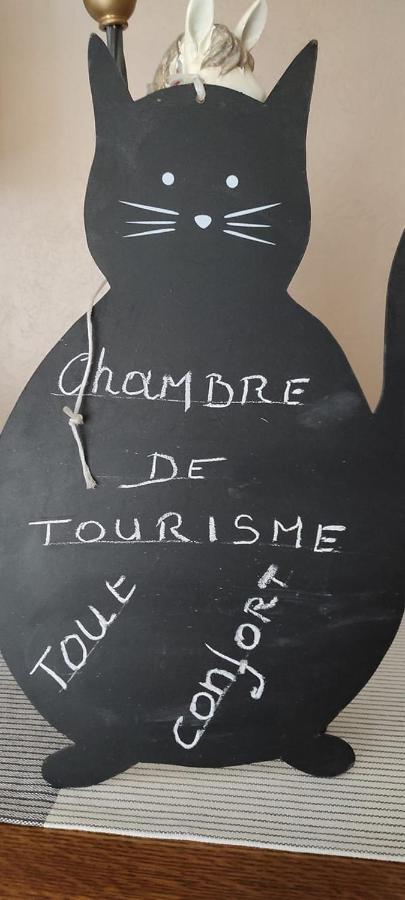 ChaMBRE
DE
TOURISME
TOUT
ConfORT